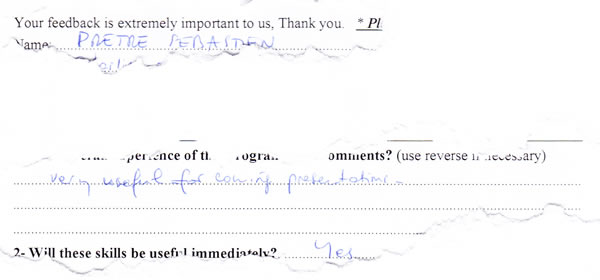 Your feedback is extremely important to us, Thank you. * Pl
Name PRETRE SEBASTIEN
perience of th rogra omments? (use reverse if necessary)
very useful for coming presentations
2- Will these skills be useful immediately? Yes